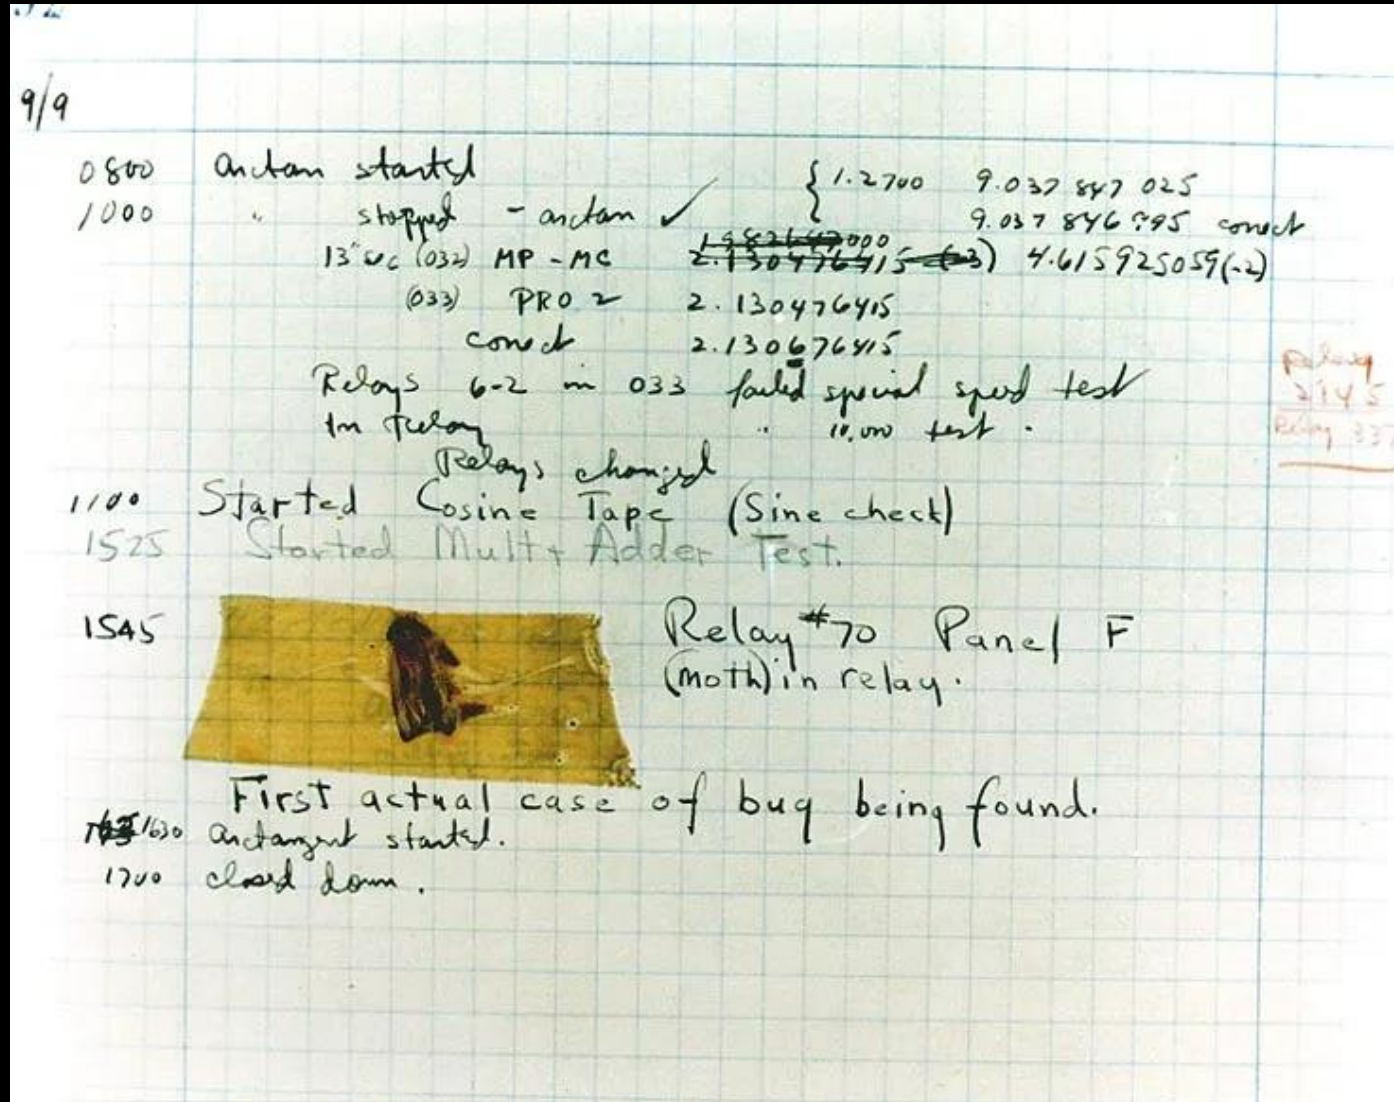 9/9
0800 arctan started { 1.2700 9.037 847 025
1000 " stopped - arctan ✓ 9.037 846 795 conect
13" sec (032) MP - MC 1.982647000 2.130476415 (-3) 4.615925059(-2)
(033) PRO 2 2.130476415
conect 2.130676415
Relays 6-2 in 033 failed special speed test
In Relay " 10,000 test .
Relay
2145
Relay 337
Relays changed
1100 Started Cosine Tape (Sine check)
1525 Started Mult + Adder Test.
1545 Relay #70 Panel F
(moth) in relay.
First actual case of bug being found.
1630 arctangent started.
1700 closed down .